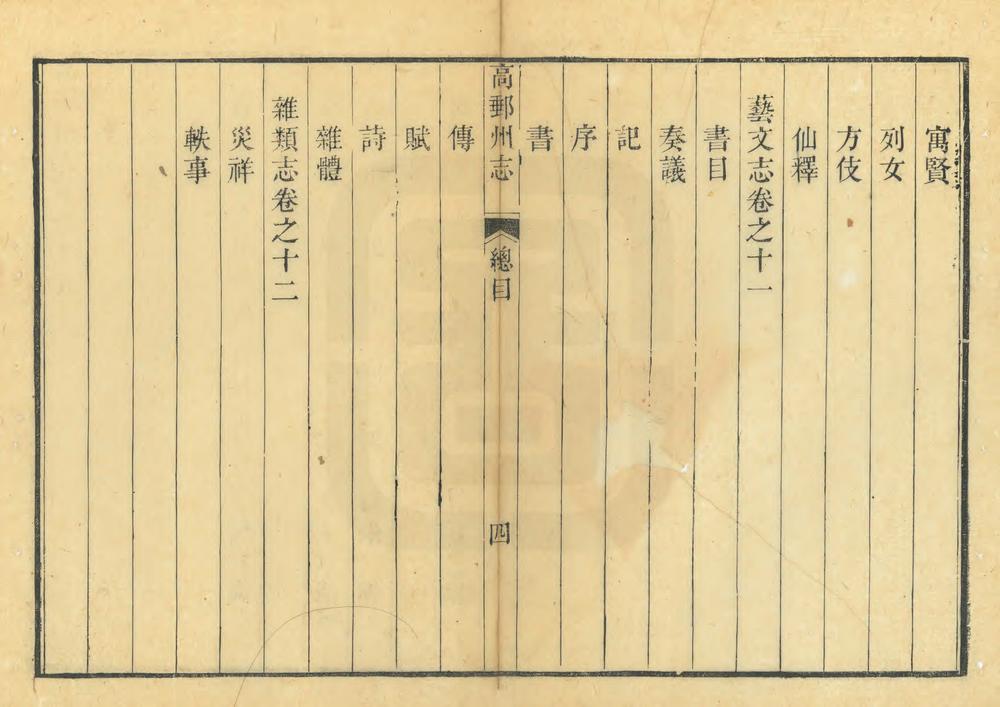 寓賢
列女
方伎
仙釋
藝文志卷之十一
書目
奏議
記
序
書
高郵州志
總目
四
傳
賦
詩
雜體
雜類志卷之十二
災祥
軼事